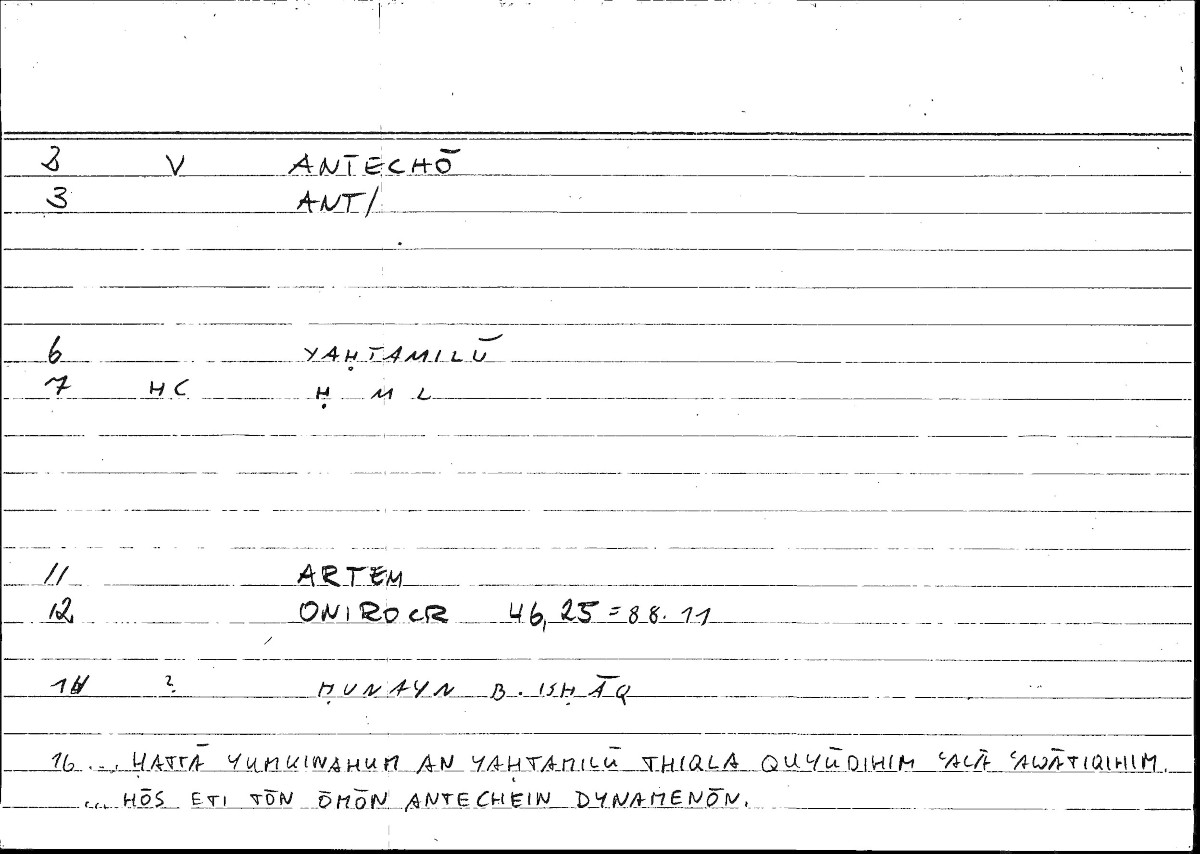 2 V ANTECHŌ
3 ANT/
6 YAḤTAMILŪ
7 HC Ḥ M L
11 ARTEM
12 ONIROCR 46,25=88.11
14 ? ḤUNAYN B. ISḤĀQ
16 ... ḤATTĀ YUMKINAHUM AN YAḤTAMILŪ THIQLA QUYŪDIHIM ʿALĀ ʿAWĀTIQIHIM.
... HŌS ETI TŌN ŌMŌN ANTECHEIN DYNAMENŌN.